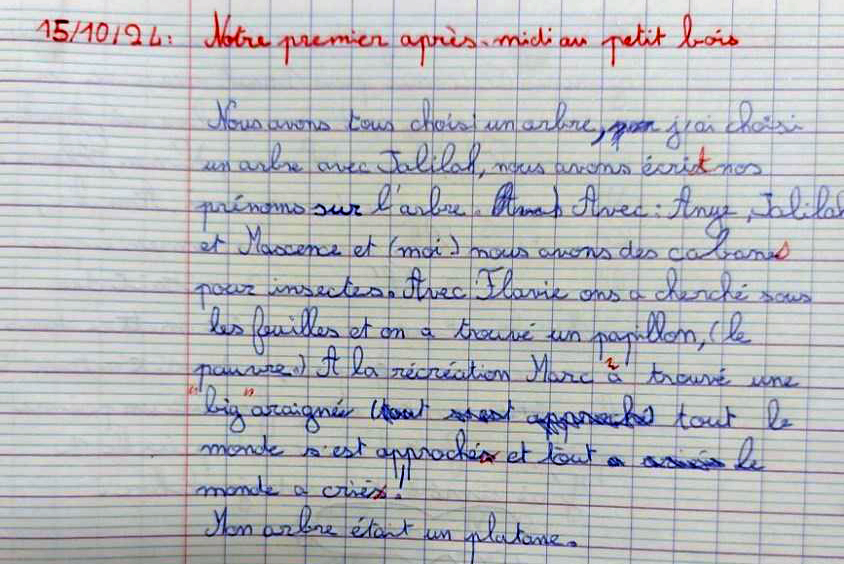 15/10/24: Notre premier après-midi au petit bois
Nous avons tous choisi un arbre, j'ai choisi
un arbre avec Jalilah, nous avons écrit nos
prénoms sur l'arbre. Avec : Ange, Jalilah
et Maxence et (moi.) nous avons des cabanes
pour insectes. Avec Flavie ons a cherché sous
les feuilles et on a trouvé un papillon, (le
pauvre.) A la récréation Marc à trouvé une
"big" araignée tout le
monde s'est approché et tout le
monde a crié !!
Mon arbre était un platane.